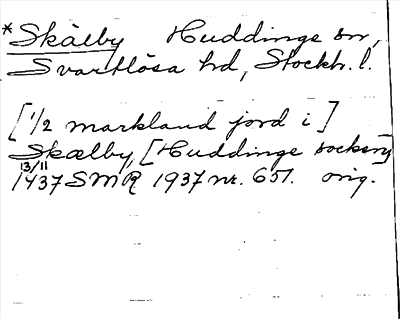 *Skälby Huddinge sn,
Svartlösa hd, Stockh. l.
[1/2 markland jord i]
Skælby, [Huddinge socken]
13/11 1437 SMR 1937 nr. 651. orig.